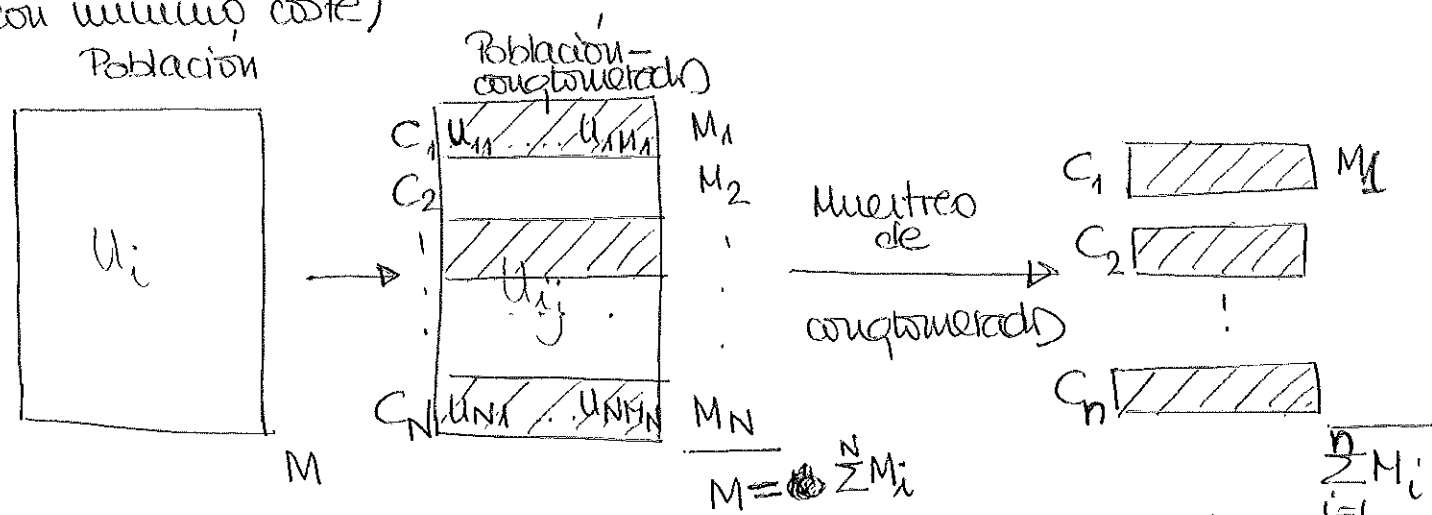 con mínimo coste)
Población
Población-
conglomerados
C₁ U₁₁ ... U₁M₁ M₁
C₂ M₂
Uᵢ
Uᵢⱼ
C_N U_N1 ... U_NM_N M_N
M
M = Σᴺ Mᵢ
Muestreo
de
conglomerados
C₁ M₁
C₂
Cₙ
Σⁿᵢ₌₁ Mᵢ